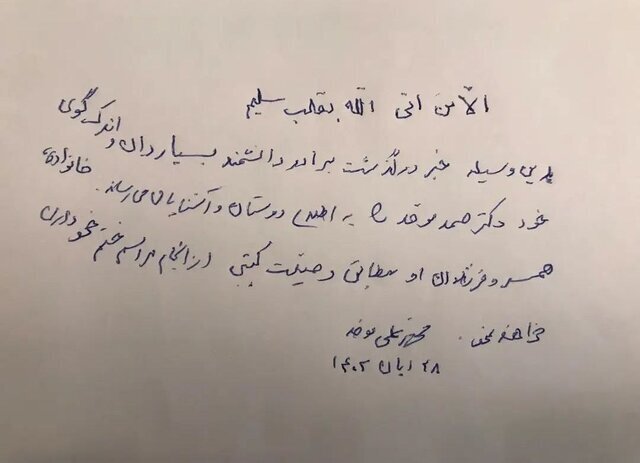 الّا من اتی اللّه بقلب سلیم
بدین وسیله خبر درگذشت برادر دانشمند بسیاردان و اندک گوی
خود دکتر صمد موحد را به اطلاع دوستان و آشنایان می رساند. خانواده،
همسر و فرزندان او مطابق وصیّت کتبی از انجام مراسم ختم خودداری
خواهند نمود. محمدعلی موحد
۲۸ آبان ۱۴۰۲